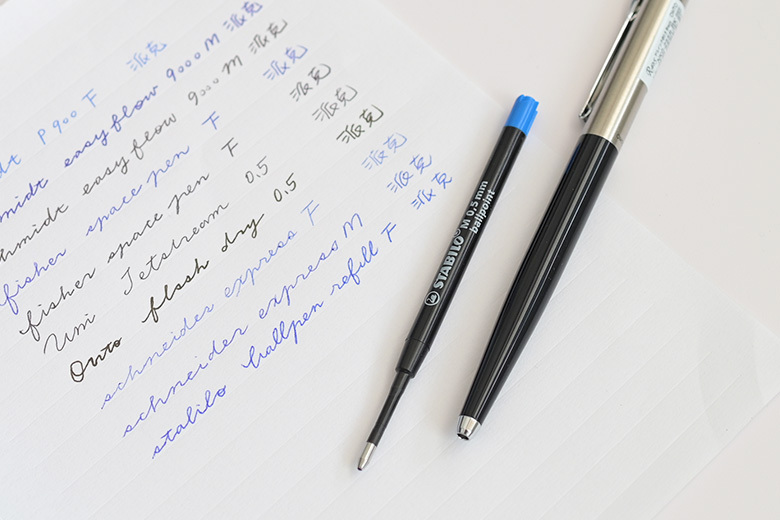 dt P900 F 派克
midt easy flow 9000 M 派克
hmidt easy flow 9000 M 派克
fisher space pen F 派克
fisher space pen F 派克
Uni Jetstream 0.5 派克
Ohto flash dry 0.5 派克
schneider express F 派克
schneider express M 派克
stabilo ballpen refill F 派克
STABILO® M 0.5 mm
ballpoint